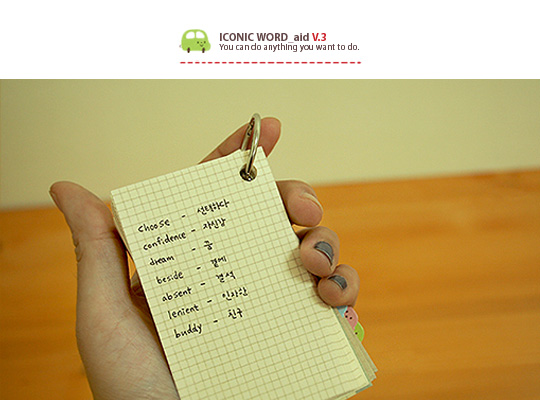 ICONIC WORD_aid V.3
You can do anything you want to do.
choose - 선택하다
confidence - 자신감
dream - 꿈
beside - 곁에
absent - 결석
lenient - 인자한
buddy - 친구